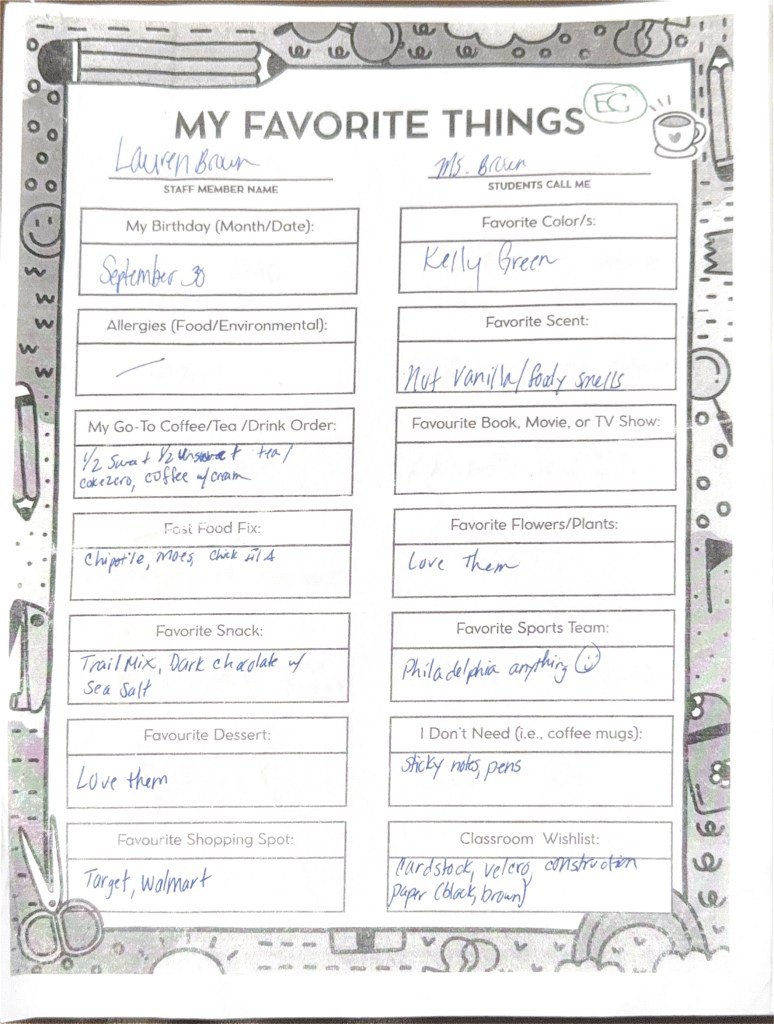 EC
MY FAVORITE THINGS
Lauren Braun
STAFF MEMBER NAME
Ms. Braun
STUDENTS CALL ME
My Birthday (Month/Date):
September 30
Favorite Color/s:
Kelly Green
Allergies (Food/Environmental):
Favorite Scent:
Not vanilla/foody smells
My Go-To Coffee/Tea /Drink Order:
1/2 Sweet 1/2 Unsweet tea/
coke zero, coffee w/cream
Favourite Book, Movie, or TV Show:
Fast Food Fix:
Chipotle, Moes, Chick Fil A
Favorite Flowers/Plants:
Love Them
Favorite Snack:
Trail Mix, Dark chocolate w/
Sea Salt
Favorite Sports Team:
Philadelphia anything
Favourite Dessert:
Love them
I Don't Need (i.e., coffee mugs):
sticky notes, pens
Favourite Shopping Spot:
Target, Walmart
Classroom Wishlist:
Cardstock, velcro, construction
paper (black, brown)